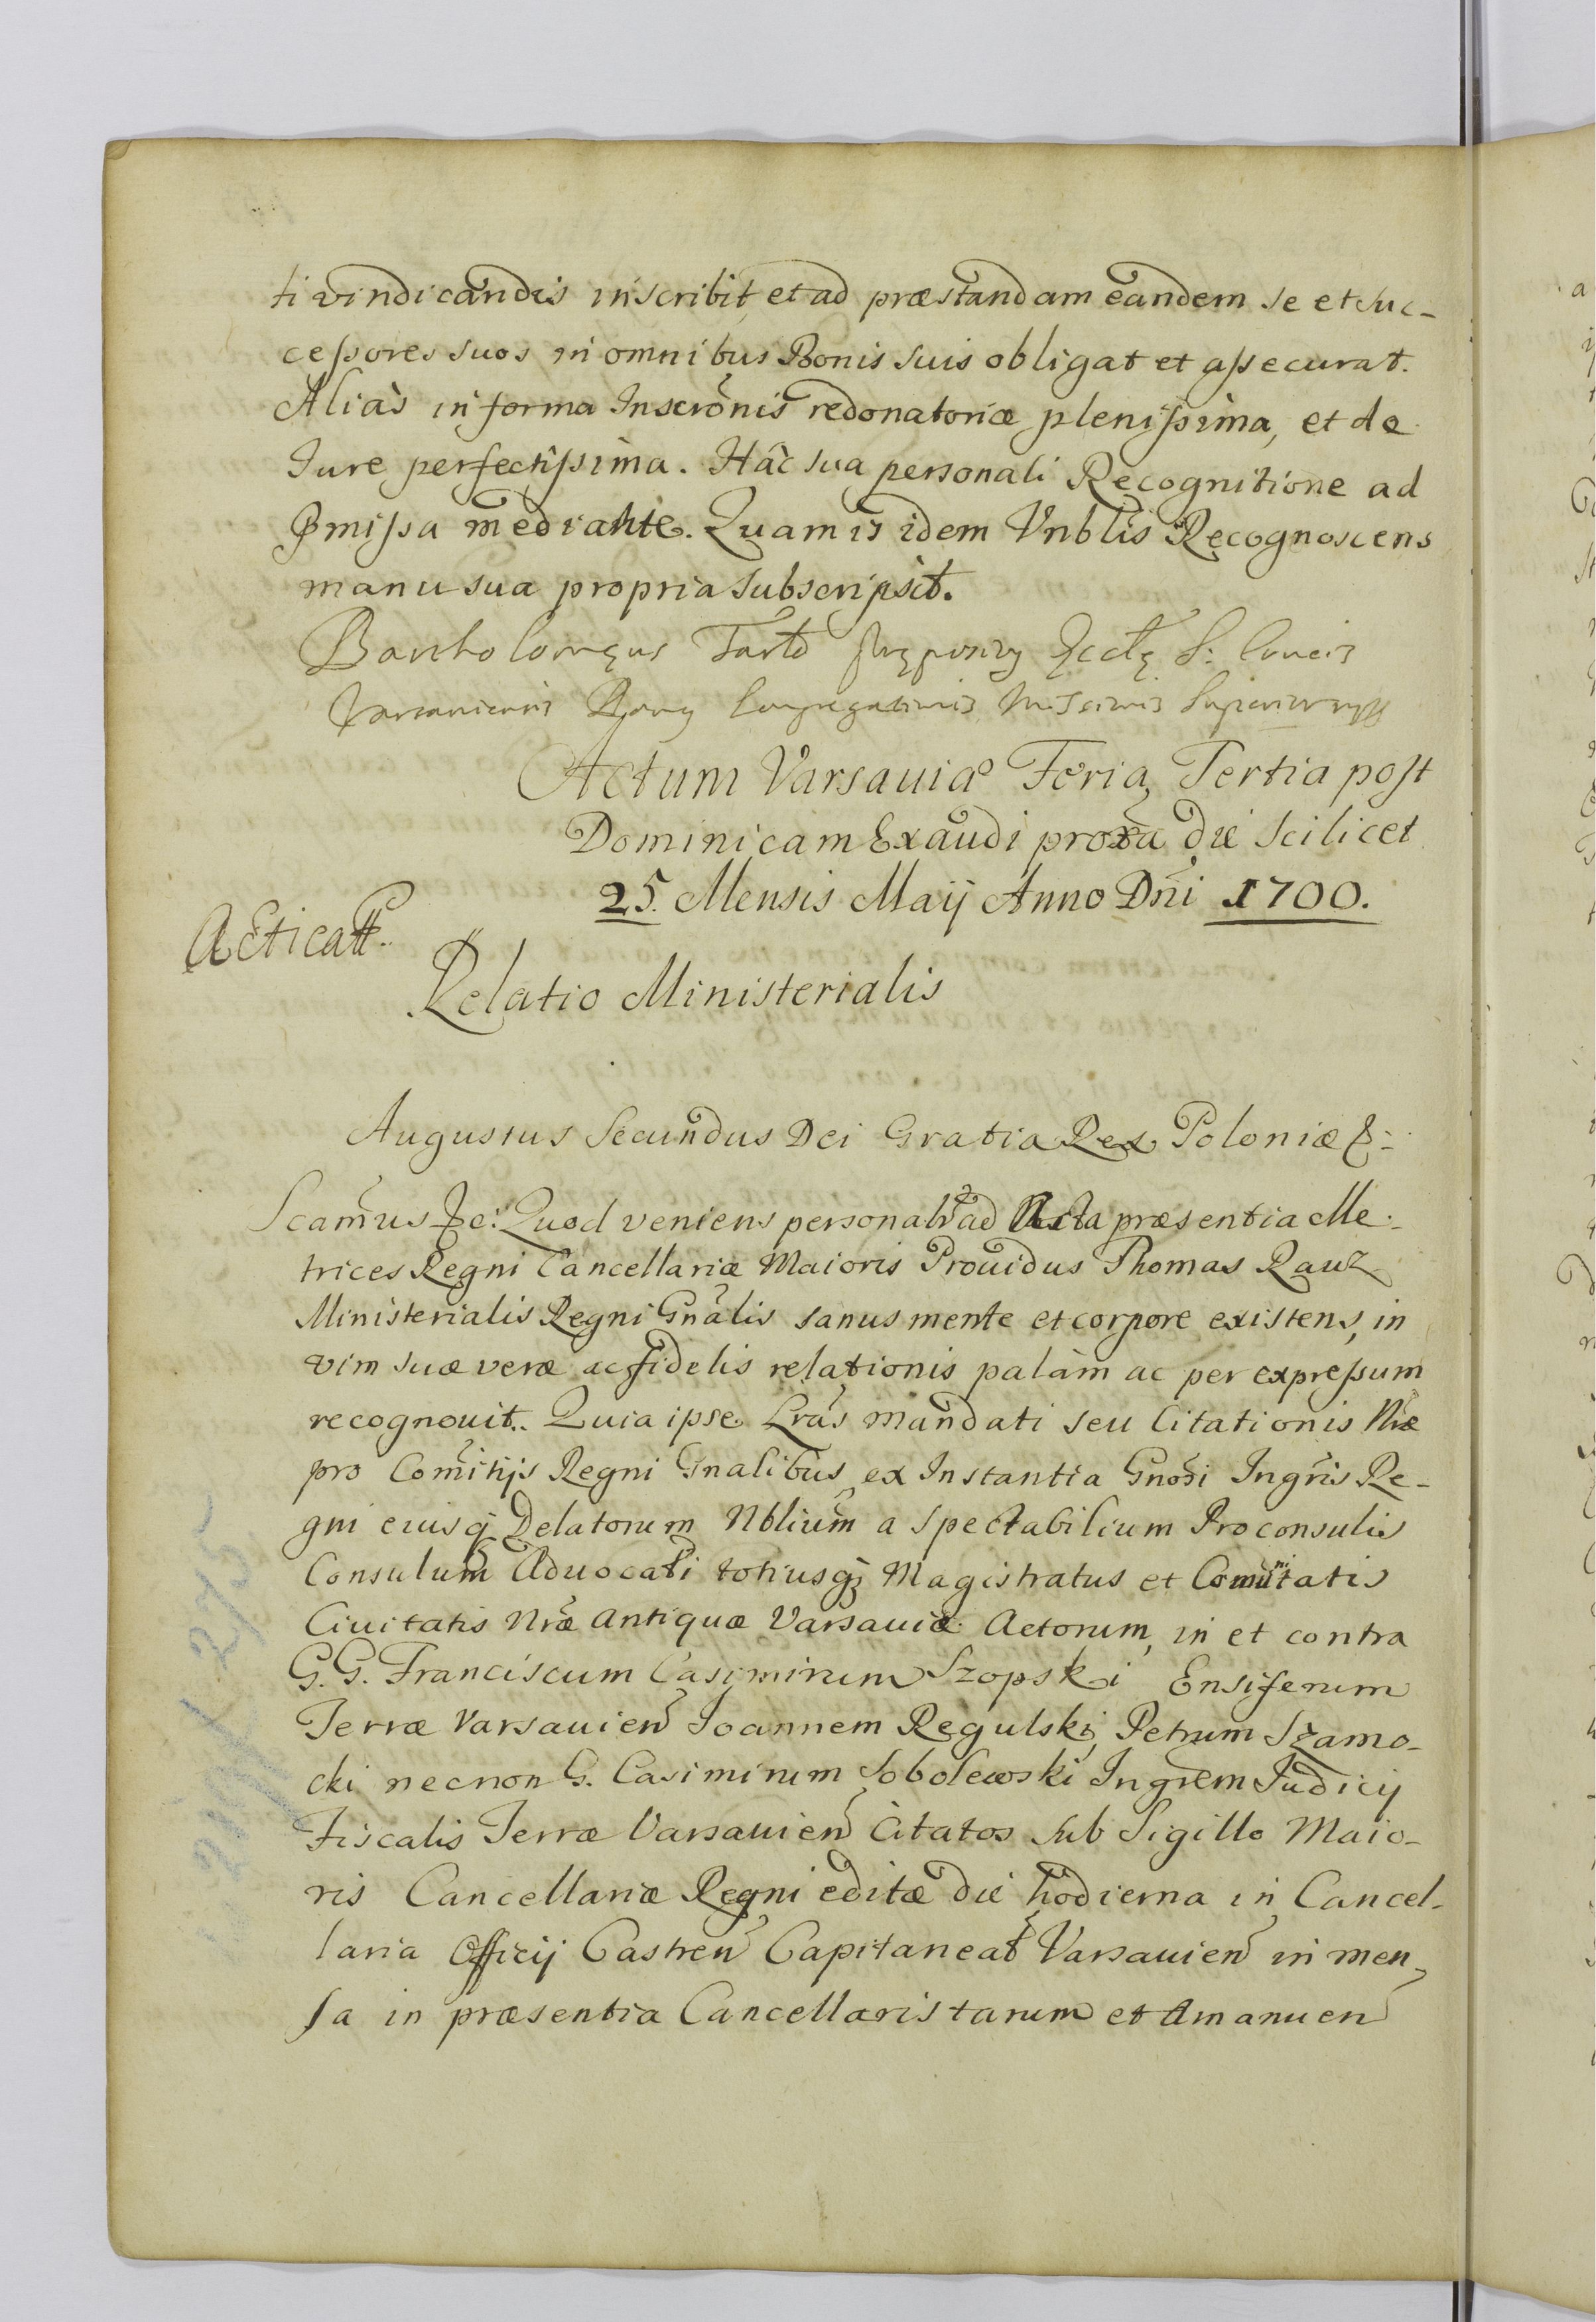 ti vindicandis inscribit, et ad præstandam eandem se et suc-
cessores suos in omnibus Bonis suis obligat et assecurat.
Aliàs in forma Inscrõnis redonatoriæ plenissima, et de
Iure perfectissima. Hâc sua personali Recognitione ad
Pmissa mediante. Quam is idem Vnblis Recognoscens
manu sua propria subscripsit.
Bartholomęus Tarło Pręposity Ecclę S: Crucis
Varsaviensis Congregationis Missionis Superior mpp
Actum Varsauiæ Feria Tertia post
Dominicam Exaudi proxã die scilicet
25. Mensis Maij Anno Dñi 1700.
Acticatt.
Relatio Ministerialis
Augustus Secundus Dei Gratia Rex Poloniæ &:
Scamus &c: Quod veniens personalr ad Acta præsentia Me-
trices Regni Cancellariæ Maioris Prouidus Thomas Rauz
Ministerialis Regni Gnãlis sanus mente et corpore existens, in
vim suæ veræ ac fidelis relationis palàm ac per expressum
recognouit. Quia ipse Lrãs mandati seu Citationis Nræ
pro Comitijs Regni Gnalibus, ex Instantia Gnosi Ingris Re-
gni eiusq Delatorum Nblium a spectabilium Proconsulis
Consulum Aduocati totiusq Magistratus et Comũitatis
Ciuitatis Nræ Antiquæ Varsauiæ Actorum, in et contra
G.G. Franciscum Casimirum Szopski Ensiferum
Terræ Varsauien Joannem Regulski, Petrum Szamo-
cki necnon G. Casimirum Sobolewski Ingrem Judicij
Fiscalis Terræ Varsauien Citatos sub Sigillo Maio-
ris Cancellariæ Regni editæ die hodierna in Cancel-
laria Officij Castren Capitaneat Varsauien in men-
sa in præsentia Cancellaristarum et Amanuen